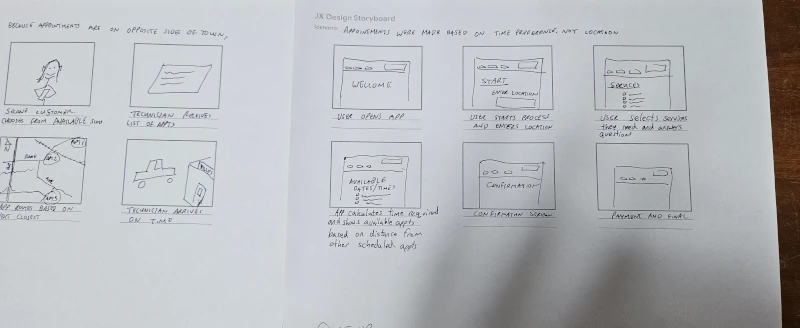 BECAUSE APPOINTMENTS ARE ON OPPOSITE SIDE OF TOWN,
CUSTOMER
CHOOSES FROM AVAILABLE
TECHNICIAN RECEIVES
LIST OF APPTS
APP ROUTES BASED ON
CLOSEST
TECHNICIAN ARRIVES
ON TIME
UX Design Storyboard
Scenario: APPOINTMENTS WERE MADE BASED ON TIME PREFERENCE, NOT LOCATION
WELCOME
USER OPENS APP
START
ENTER LOCATION
USER STARTS PROCESS
AND ENTERS LOCATION
SERVICES
USER SELECTS SERVICES
they need and answers
question
AVAILABLE
DATES/TIMES
App calculates time required
and shows available appts
based on distance from
other scheduled appts
CONFIRMATION
CONFIRMATION SCREEN
PAYMENT AND FINAL